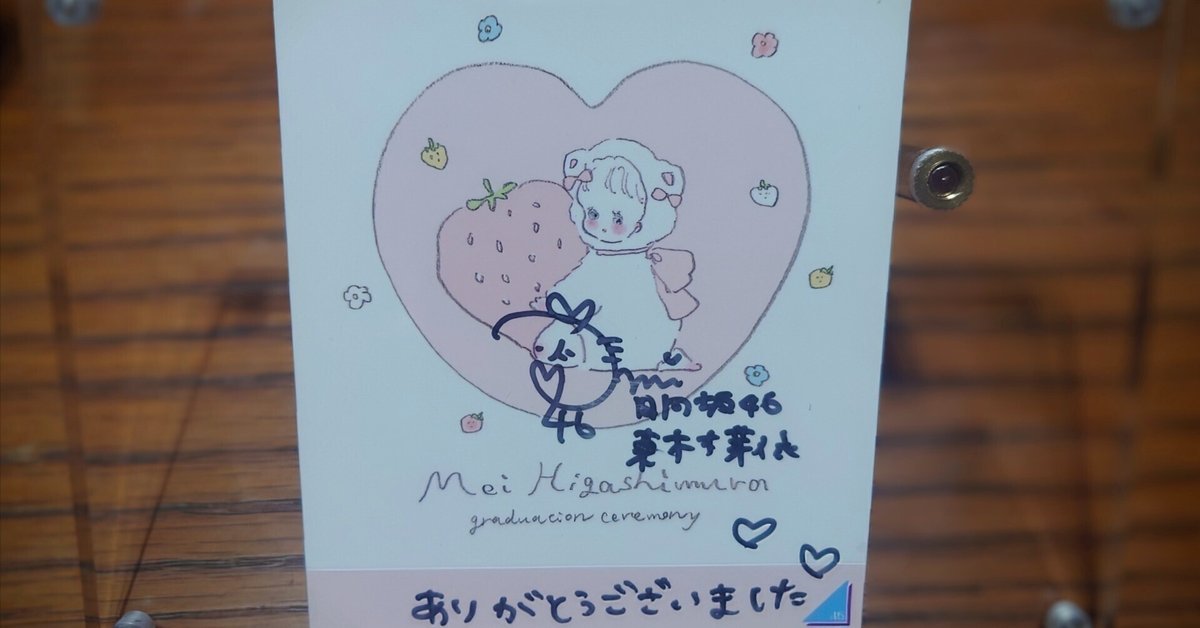 46
日向坂46
東村芽依
Mei Higashimura
graduacion ceremony
ありがとうございました